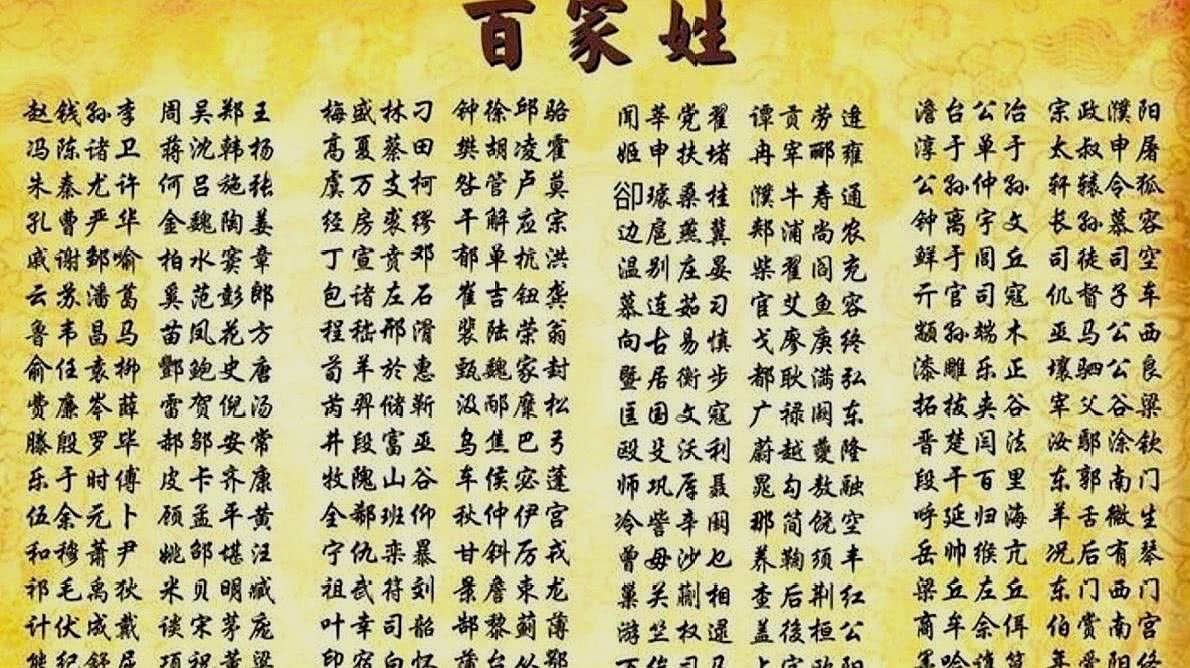 百家姓
赵钱孙李 周吴郑王
冯陈诸卫 蒋沈韩杨
朱秦尤许 何吕施张
孔曹严华 金魏陶姜
戚谢邹喻 柏水窦章
云苏潘葛 奚范彭郎
鲁韦昌马 苗凤花方
俞任袁柳 酆鲍史唐
费廉岑薛 雷贺倪汤
滕殷罗毕 郝邬安常
乐于时傅 皮卡齐康
伍余元卜 顾孟平黄
和穆萧尹 姚邵堪汪
祁毛禹狄 米贝明臧
计伏成戴 谈宋茅庞
熊纪舒屈 项祝董梁
梅盛林刁 钟徐邱骆
高夏蔡田 樊胡凌霍
虞万支柯 昝管卢莫
经房裘缪 干解应宗
丁宣贲邓 郁单杭洪
包诸左石 崔吉钮龚
程嵇邢滑 裴陆荣翁
荀羊於惠 甄魏家封
芮羿储靳 汲邴糜松
井段富巫 乌焦巴弓
牧隗山谷 车侯宓蓬
全郗班仰 秋仲伊宫
宁仇栾暴 甘斜厉戎
祖武符刘 景詹束龙
叶幸司韶 郜黎蓟薄
印宿白怀 蒲台从鄂
闻莘党翟 谭贡劳逄
姬申扶堵 冉宰郦雍
卻璩桑桂 濮牛寿通
边扈燕冀 郏浦尚农
温别庄晏 柴瞿阎充
慕连茹习 宦艾鱼容
向古易慎 戈廖庚终
暨居衡步 都耿满弘
匡国文寇 广禄阙东
殴殳沃利 蔚越夔隆
师巩厍聂 晁勾敖融
冷訾辛阚 那简饶空
曾毋沙乜 养鞠须丰
巢关蒯相 查后荆红
游竺权逯 盖後桓公
万俟司马 上官欧阳
澹台公冶 宗政濮阳
淳于单于 太叔申屠
公孙仲孙 轩辕令狐
钟离宇文 长孙慕容
鲜于闾丘 司徒司空
亓官司寇 仉督子车
颛孙端木 巫马公西
漆雕乐正 壤驷公良
拓拔夹谷 宰父谷梁
晋楚闫法 汝鄢涂钦
段干百里 东郭南门
呼延归海 羊舌微生
岳帅缑亢 况后有琴
梁丘左丘 东门西门
商牟佘佴 伯赏南宫